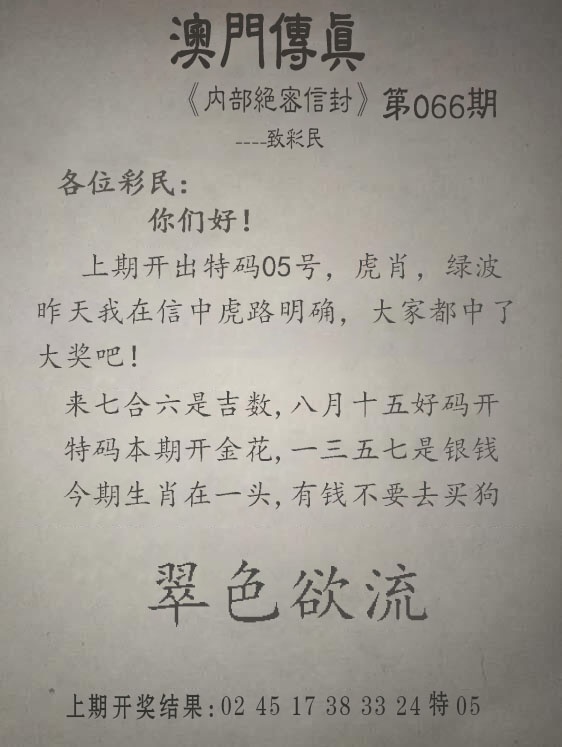 澳門傳眞
《内部絕密信封》第066期
----致彩民
各位彩民:
你们好!
上期开出特码05号，虎肖，绿波
昨天我在信中虎路明确，大家都中了
大奖吧!
来七合六是吉数,八月十五好码开
特码本期开金花,一三五七是银钱
今期生肖在一头,有钱不要去买狗
翠色欲流
上期开奖结果:02 45 17 38 33 24 特 05